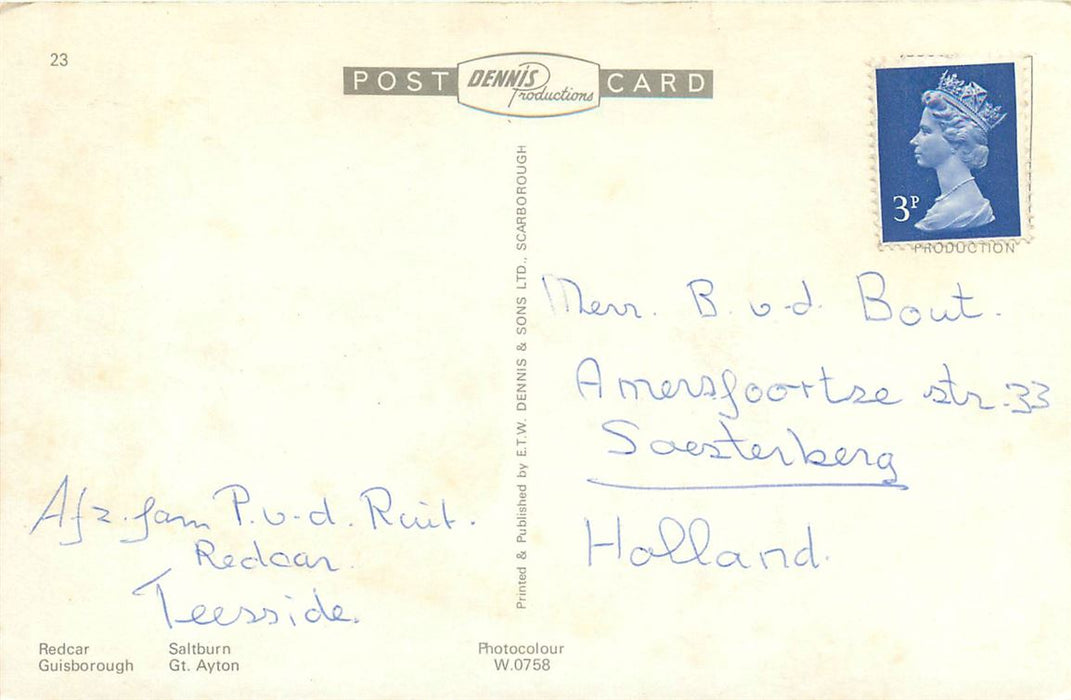 23
POST DENNIS Productions CARD
3P
PRODUCTION
Printed & Published by E.T.W. DENNIS & SONS LTD., SCARBOROUGH
Merr. B. v-d. Bout.
Amersfoortse str. 33
Soesterberg
Holland.
Afz. fam P. v-d. Ruit.
Redcar.
Teesside.
Redcar Saltburn
Guisborough Gt. Ayton
Photocolour
W.0758